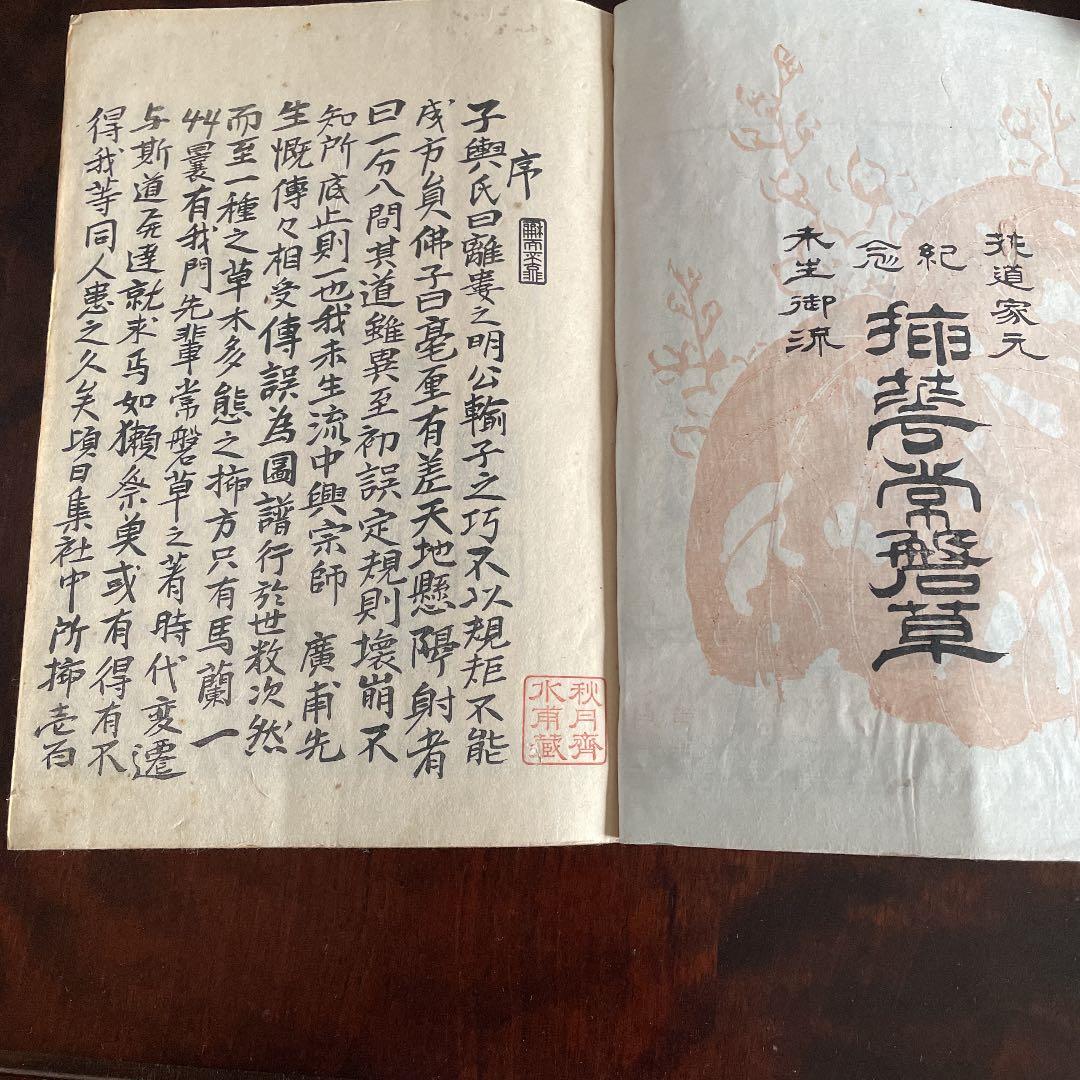 花道家元
紀念
挿花常磐草
未生御流
序
子輿氏曰離婁之明公輸子之巧不以規矩不能
成方員佛子曰毫厘有差天地懸隔射者
曰一分八間其道雖異至初誤定規則壊崩不
知所底止則一也我未生流中興宗師 廣甫先
生慨傳々相受傳誤為圖譜行於世数次然
而至一種之草木多態之挿方只有馬蘭一
艸曩有我門先輩常磐草之著時代変遷
与斯道発達就求焉如獺祭奠或有得有不
得我等同人患之久矣頃日集社中所挿壱百
秋月齊
水甫蔵